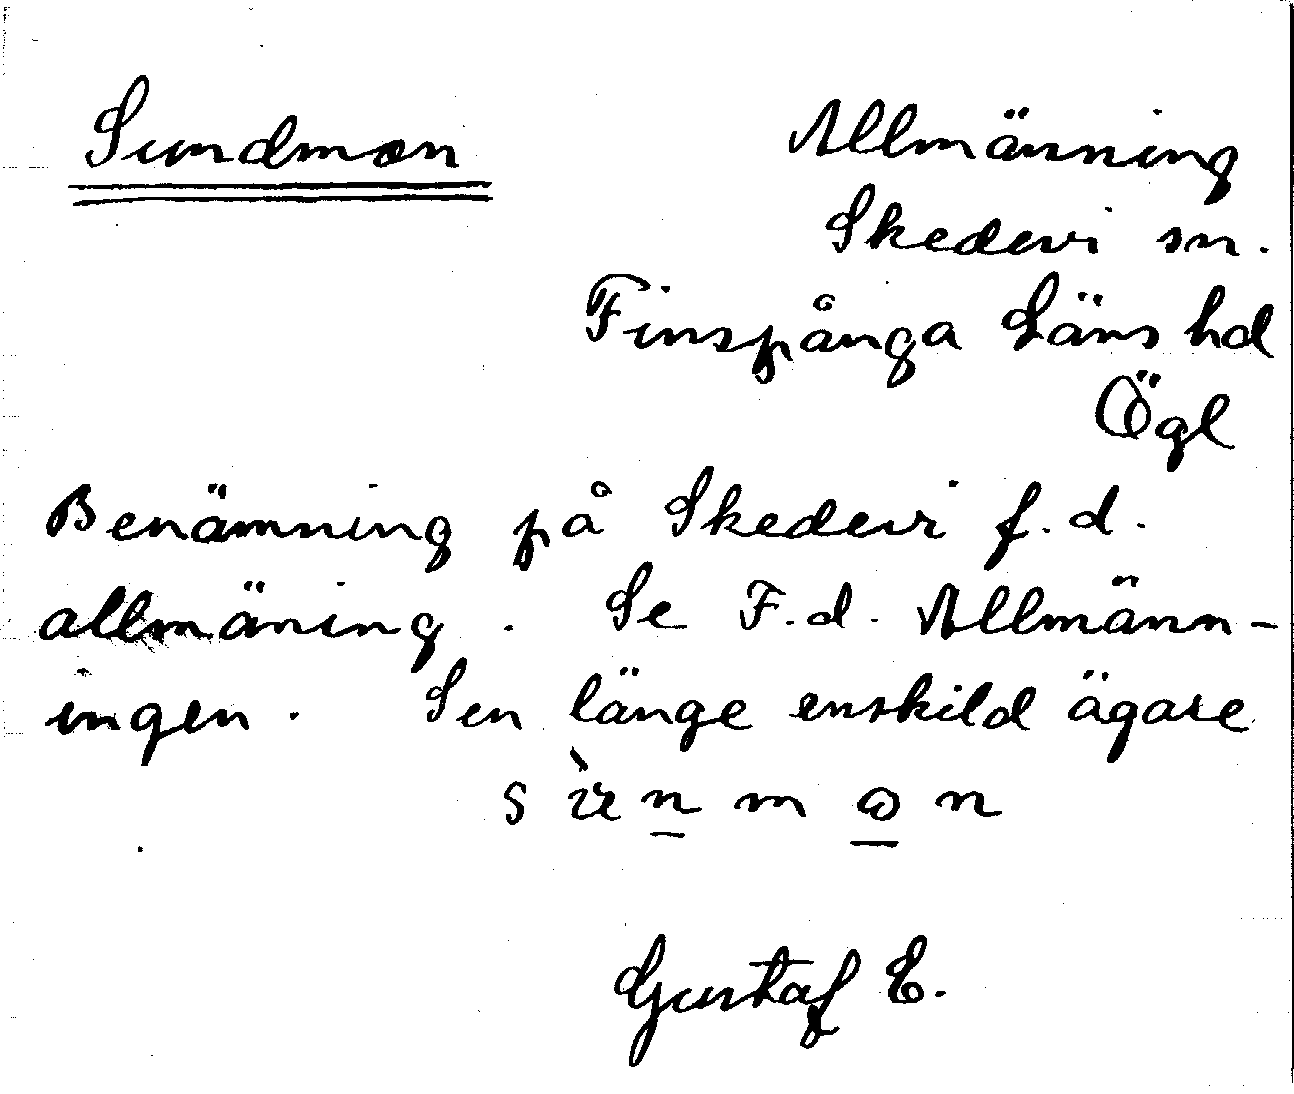 Sundmon
Allmänning
Skedevi sn.
Finspånga Läns hd
Ögl
Benämning på Skedevi f.d.
allmäning. Se F.d. Allmänn-
ingen. Sen länge enskild ägare
Gustaf E.